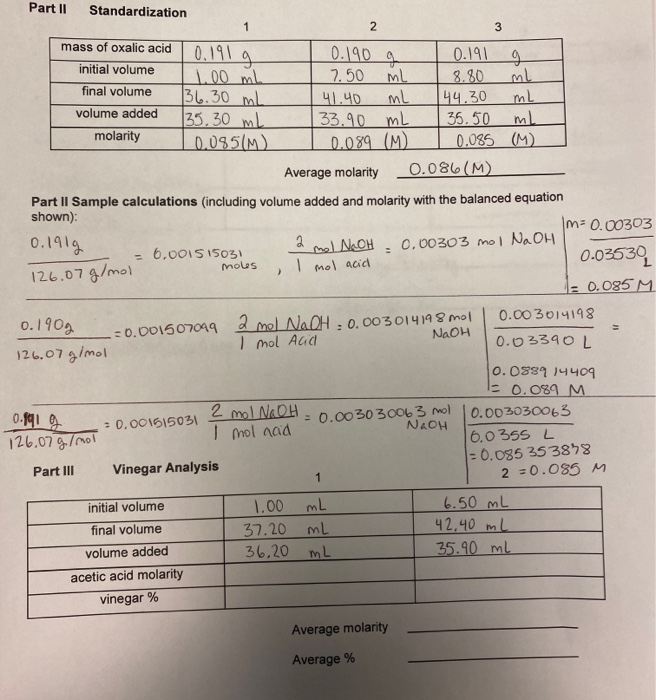 Part II Standardization
1 2 3
mass of oxalic acid 0.191 g 0.190 g 0.191 g
initial volume 1.00 mL 7.50 mL 8.80 mL
final volume 36.30 mL 41.40 mL 44.30 mL
volume added 35.30 mL 33.90 mL 35.50 mL
molarity 0.085(M) 0.089 (M) 0.085 (M)
Average molarity 0.086(M)
Part II Sample calculations (including volume added and molarity with the balanced equation
shown):
0.191g
126.07 g/mol
= 0.001515031
moles
, 2 mol NaOH
1 mol acid
= 0.00303 mol NaOH
m= 0.00303
0.03530 L
= 0.085 M
0.190g
126.07 g/mol
=0.001507099
2 mol NaOH
1 mol Acid
= 0.003014198 mol
NaOH
0.003014198
0.03390 L
=
0.088914409
= 0.089 M
0.191 g
126.07 g/mol
= 0.001515031
2 mol NaOH
1 mol acid
= 0.003030063 mol
NaOH
0.003030063
0.0355 L
= 0.085353898
2 = 0.085 M
Part III Vinegar Analysis
1
initial volume 1.00 mL 6.50 mL
final volume 37.20 mL 42.40 mL
volume added 36.20 mL 35.90 mL
acetic acid molarity
vinegar %
Average molarity
Average %